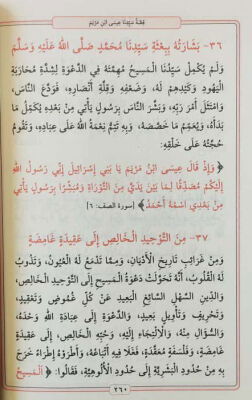 قصة سيدنا عيسى ابن مريم
٣٦- بَشَارَتُهُ بِبِعْثَةِ سَيِّدِنَا مُحَمَّدٍ صَلَّى اللهُ عَلَيْهِ وَسَلَّمَ
وَلَمْ يُكْمِلْ سَيِّدُنَا الْمَسِيحُ مُهِمَّتَهُ فِي الدَّعْوَةِ لِشِدَّةِ مُحَارَبَةِ
الْيَهُودِ وَكَيْدِهِمْ لَهُ، وَضَعْفِهِ وَقِلَّةِ أَنْصَارِهِ، فَوَدَّعَ النَّاسَ،
وَامْتَثَلَ أَمْرَ رَبِّهِ، وَبَشَّرَ النَّاسَ بِرَسُولٍ يَأْتِي مِنْ بَعْدِهِ يُكَمِّلُ مَا
بَدَأَهُ، وَيُعَمِّمُ مَا خَصَّصَهُ، وَبِهِ تَتِمُّ نِعْمَةُ اللهِ عَلَى عِبَادِهِ، وَتَقُومُ
حُجَّتُهُ عَلَى خَلْقِهِ:
﴿وَإِذْ قَالَ عِيسَى ابْنُ مَرْيَمَ يَا بَنِي إِسْرَائِيلَ إِنِّي رَسُولُ اللهِ
إِلَيْكُمْ مُصَدِّقًا لِمَا بَيْنَ يَدَيَّ مِنَ التَّوْرَاةِ وَمُبَشِّرًا بِرَسُولٍ يَأْتِي
مِنْ بَعْدِي اسْمُهُ أَحْمَدُ﴾ [سورة الصف: ٦]
٣٧- مِنَ التَّوْحِيدِ الْخَالِصِ إِلَى عَقِيدَةٍ غَامِضَةٍ
وَمِنْ غَرَائِبِ تَارِيخِ الْأَدْيَانِ، وَمِمَّا تَدْمَعُ لَهُ الْعُيُونُ، وَتَذُوبُ
لَهُ الْقُلُوبُ، أَنَّهُ تَحَوَّلَتْ دَعْوَةُ الْمَسِيحِ إِلَى التَّوْحِيدِ الْخَالِصِ،
وَالدِّينِ السَّهْلِ السَّائِغِ الْبَعِيدِ عَنْ كُلِّ غُمُوضٍ وَتَعْقِيدٍ،
وَتَحْرِيفٍ وَتَأْوِيلٍ بَعِيدٍ، وَالدَّعْوَةِ إِلَى عِبَادَةِ اللهِ وَحْدَهُ،
وَالسُّؤَالِ مِنْهُ، وَالِالْتِجَاءِ إِلَيْهِ، وَحُبِّهِ الْخَالِصِ، إِلَى عَقِيدَةٍ غَامِضَةٍ
وَفَلْسَفَةٍ مُعَقَّدَةٍ، فَغَلَا فِيهِ أَتْبَاعُهُ، وَأَطْرَوْهُ إِطْرَاءً خَرَجَ
بِهِ مِنْ حُدُودِ الْبَشَرِيَّةِ إِلَى حُدُودِ الْأُلُوهِيَّةِ، فَقَالُوا: ﴿الْمَسِيحُ
٣٦٠